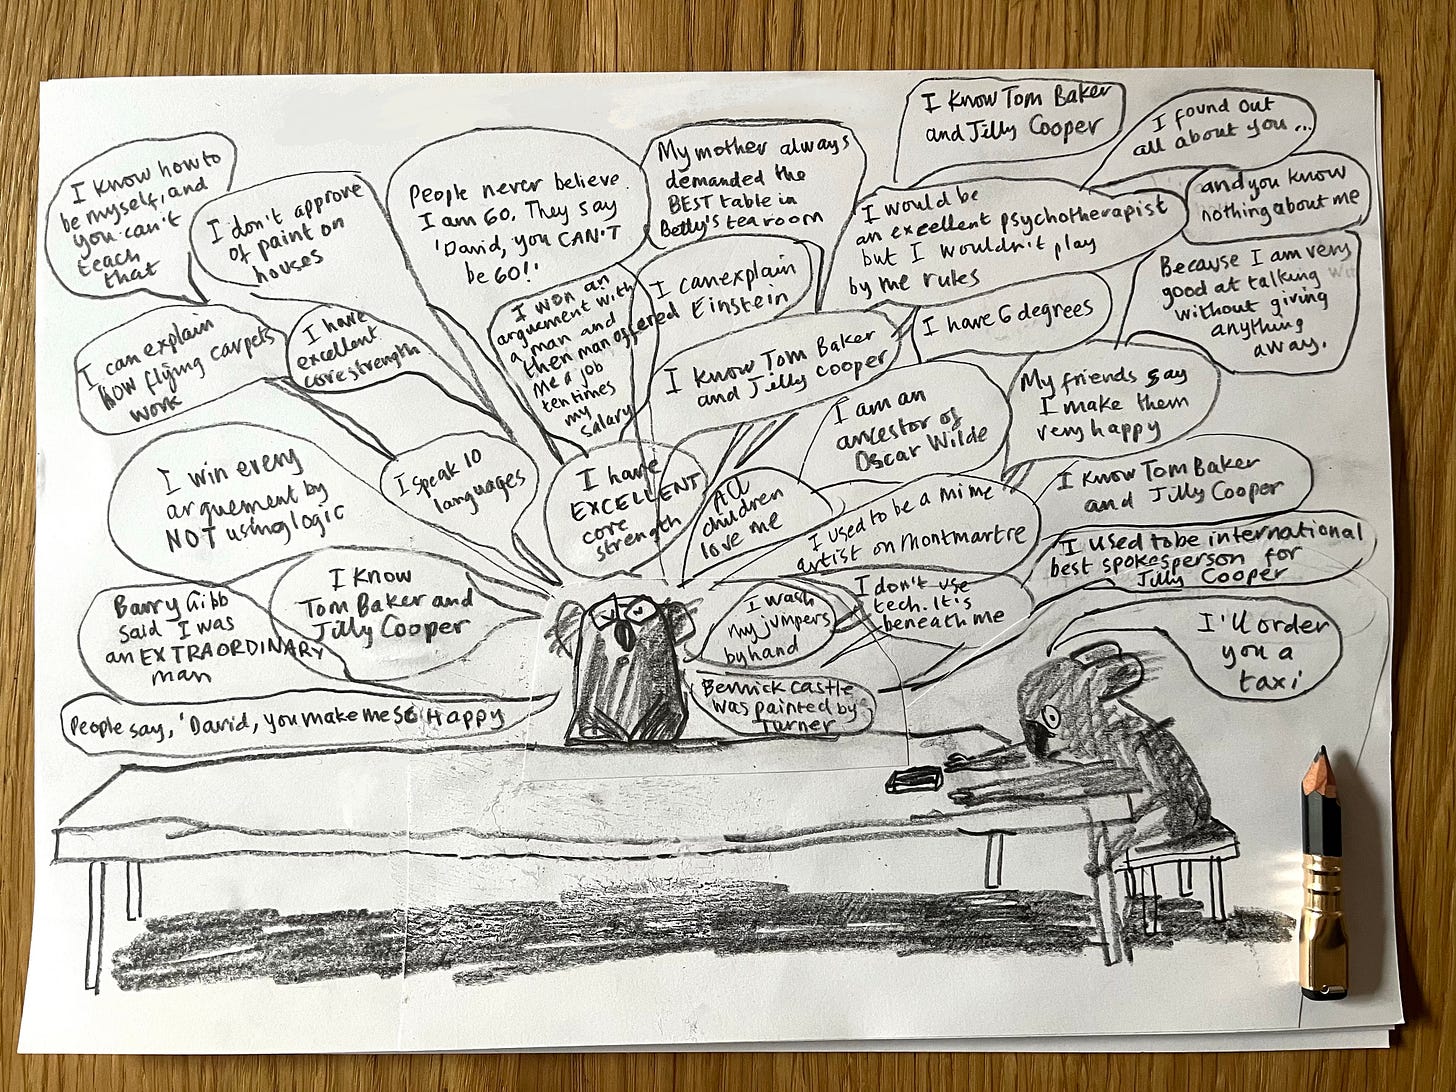 I know how to
be myself, and
you can't
teach
that
I don't approve
of paint on
houses
People never believe
I am 60. They say
'David, you CAN'T
be 60!'
My mother always
demanded the
BEST table in
Betty's tearoom
I know Tom Baker
and Jilly Cooper
I found out
all about you...
and you know
nothing about me
Because I am very
good at talking
without giving
anything
away.
I would be
an excellent psychotherapist
but I wouldn't play
by the rules
I can explain
how flying carpets
work
I have
excellent
core strength
I won an
arguement with
a man and
then man offered
me a job
ten times
my
salary
I can explain
Einstein
I know Tom Baker
and Jilly Cooper
I have 6 degrees
My friends say
I make them
very happy
I am an
ancestor of
Oscar Wilde
I win every
arguement by
NOT using logic
I speak 10
languages
I have
EXCELLENT
core
strength
All
children
love me
I used to be a mime
artist on Montmartre
I know Tom Baker
and Jilly Cooper
I used to be international
best spokesperson for
Jilly Cooper
Barry Gibb
said I was
an EXTRAORDINARY
man
I know
Tom Baker and
Jilly Cooper
I wash
my jumpers
by hand
I don't use
tech. It's
beneath me
I'll order
you a
taxi
People say, 'David, you make me so Happy
castle
was painted by
Turner